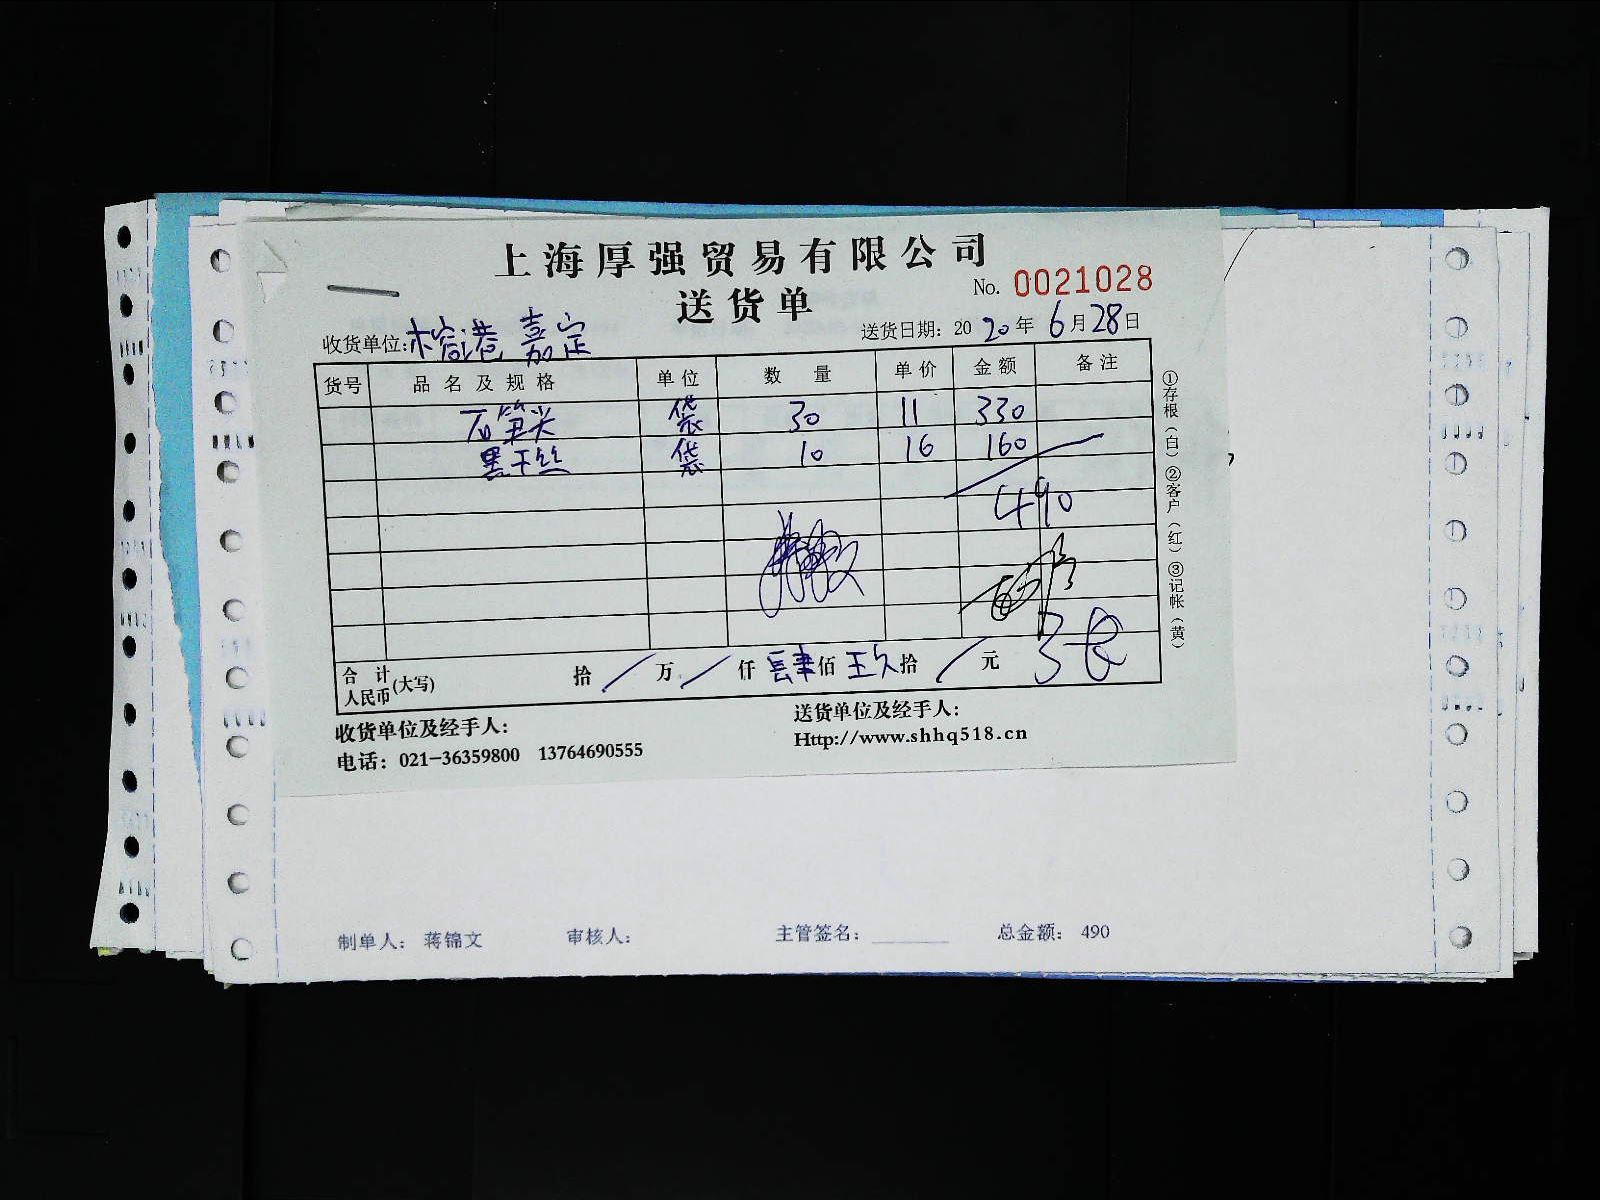 上海厚强贸易有限公司
送货单
No. 0021028
收货单位:榕港 嘉定
送货日期: 2020年6月28日
货号 品名及规格 单位 数量 单价 金额 备注
石笋尖 袋 30 11 330
黑干丝 袋 10 16 160
490
合计人民币(大写) 拾/万/仟肆佰玖拾/元
收货单位及经手人:
送货单位及经手人:
电话: 021-36359800 13764690555
Http://www.shhq518.cn
①存根(白)②客户(红)③记帐(黄)
制单人: 蒋锦文 审核人: 主管签名: 总金额: 490